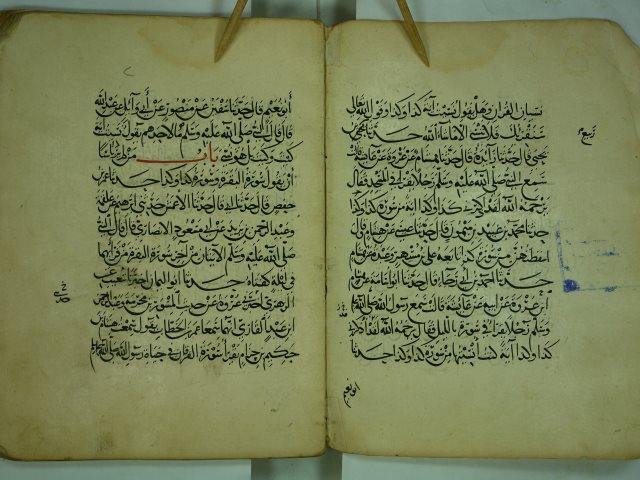 نسيان القرآن وهل يقول نسيت آية كذا وكذا وقول الله تعالى
سنقرئك فلا تنسى الا ما شاء الله حدثنا بن
ربيع
يحيى قال حدثنا زائدة قال حدثنا هشام عن عروة عن عائشة قالت
سمع النبي صلى الله عليه وسلم رجلا يقرأ في المسجد فقال
يرحمه الله لقد اذكرني كذا وكذا اية من سورة كذا وكذا
حدثنا محمد بن عبيد بن ميمون قال حدثنا عيسى عن هشام وقال
اسقطتهن من سورة كذا تابعه علي بن مسهر وعبدة عن هشام
حدثنا احمد بن ابي رجاء قال حدثنا ابو اسامة عن هشام
بن عروة عن ابيه عن عائشة قالت سمع رسول الله صلى الله عليه
وسلم رجلا يقرأ في سورة بالليل فقال يرحمه الله لقد اذكرني
كذا وكذا آية كنت انسيتها من سورة كذا وكذا حدثنا
ابو نعيم
أبو نعيم قال حدثنا سفين عن منصور عن أبي وائل عن عبد الله
قال قال النبي صلى الله عليه وسلم ما لاحدهم يقول نسيت اية
كيت وكيت بل هو نسي باب من لم ير باسا
ان يقول سورة البقرة وسورة كذا وكذا حدثنا عمر بن
حفص قال حدثنا ابي قال حدثنا الاعمش حدثني ابرهيم عن علقمة
وعبد الرحمن بن يزيد عن ابي مسعود الانصاري قال قال النبي
صلى الله عليه وسلم الآيتان من آخر سورة البقرة من قرأ بهما
في ليلة كفتاه حدثنا ابو اليمان اخبرنا شعيب عن
الزهري اخبرني عروة عن حديث المسور بن مخرمة وعبد الرحمن
ابن عبد القاري انهما سمعا عمر بن الخطاب يقول سمعت هشام بن
حكيم بن حزام يقرأ سورة الفرقان في حياة رسول الله صلى الله عليه